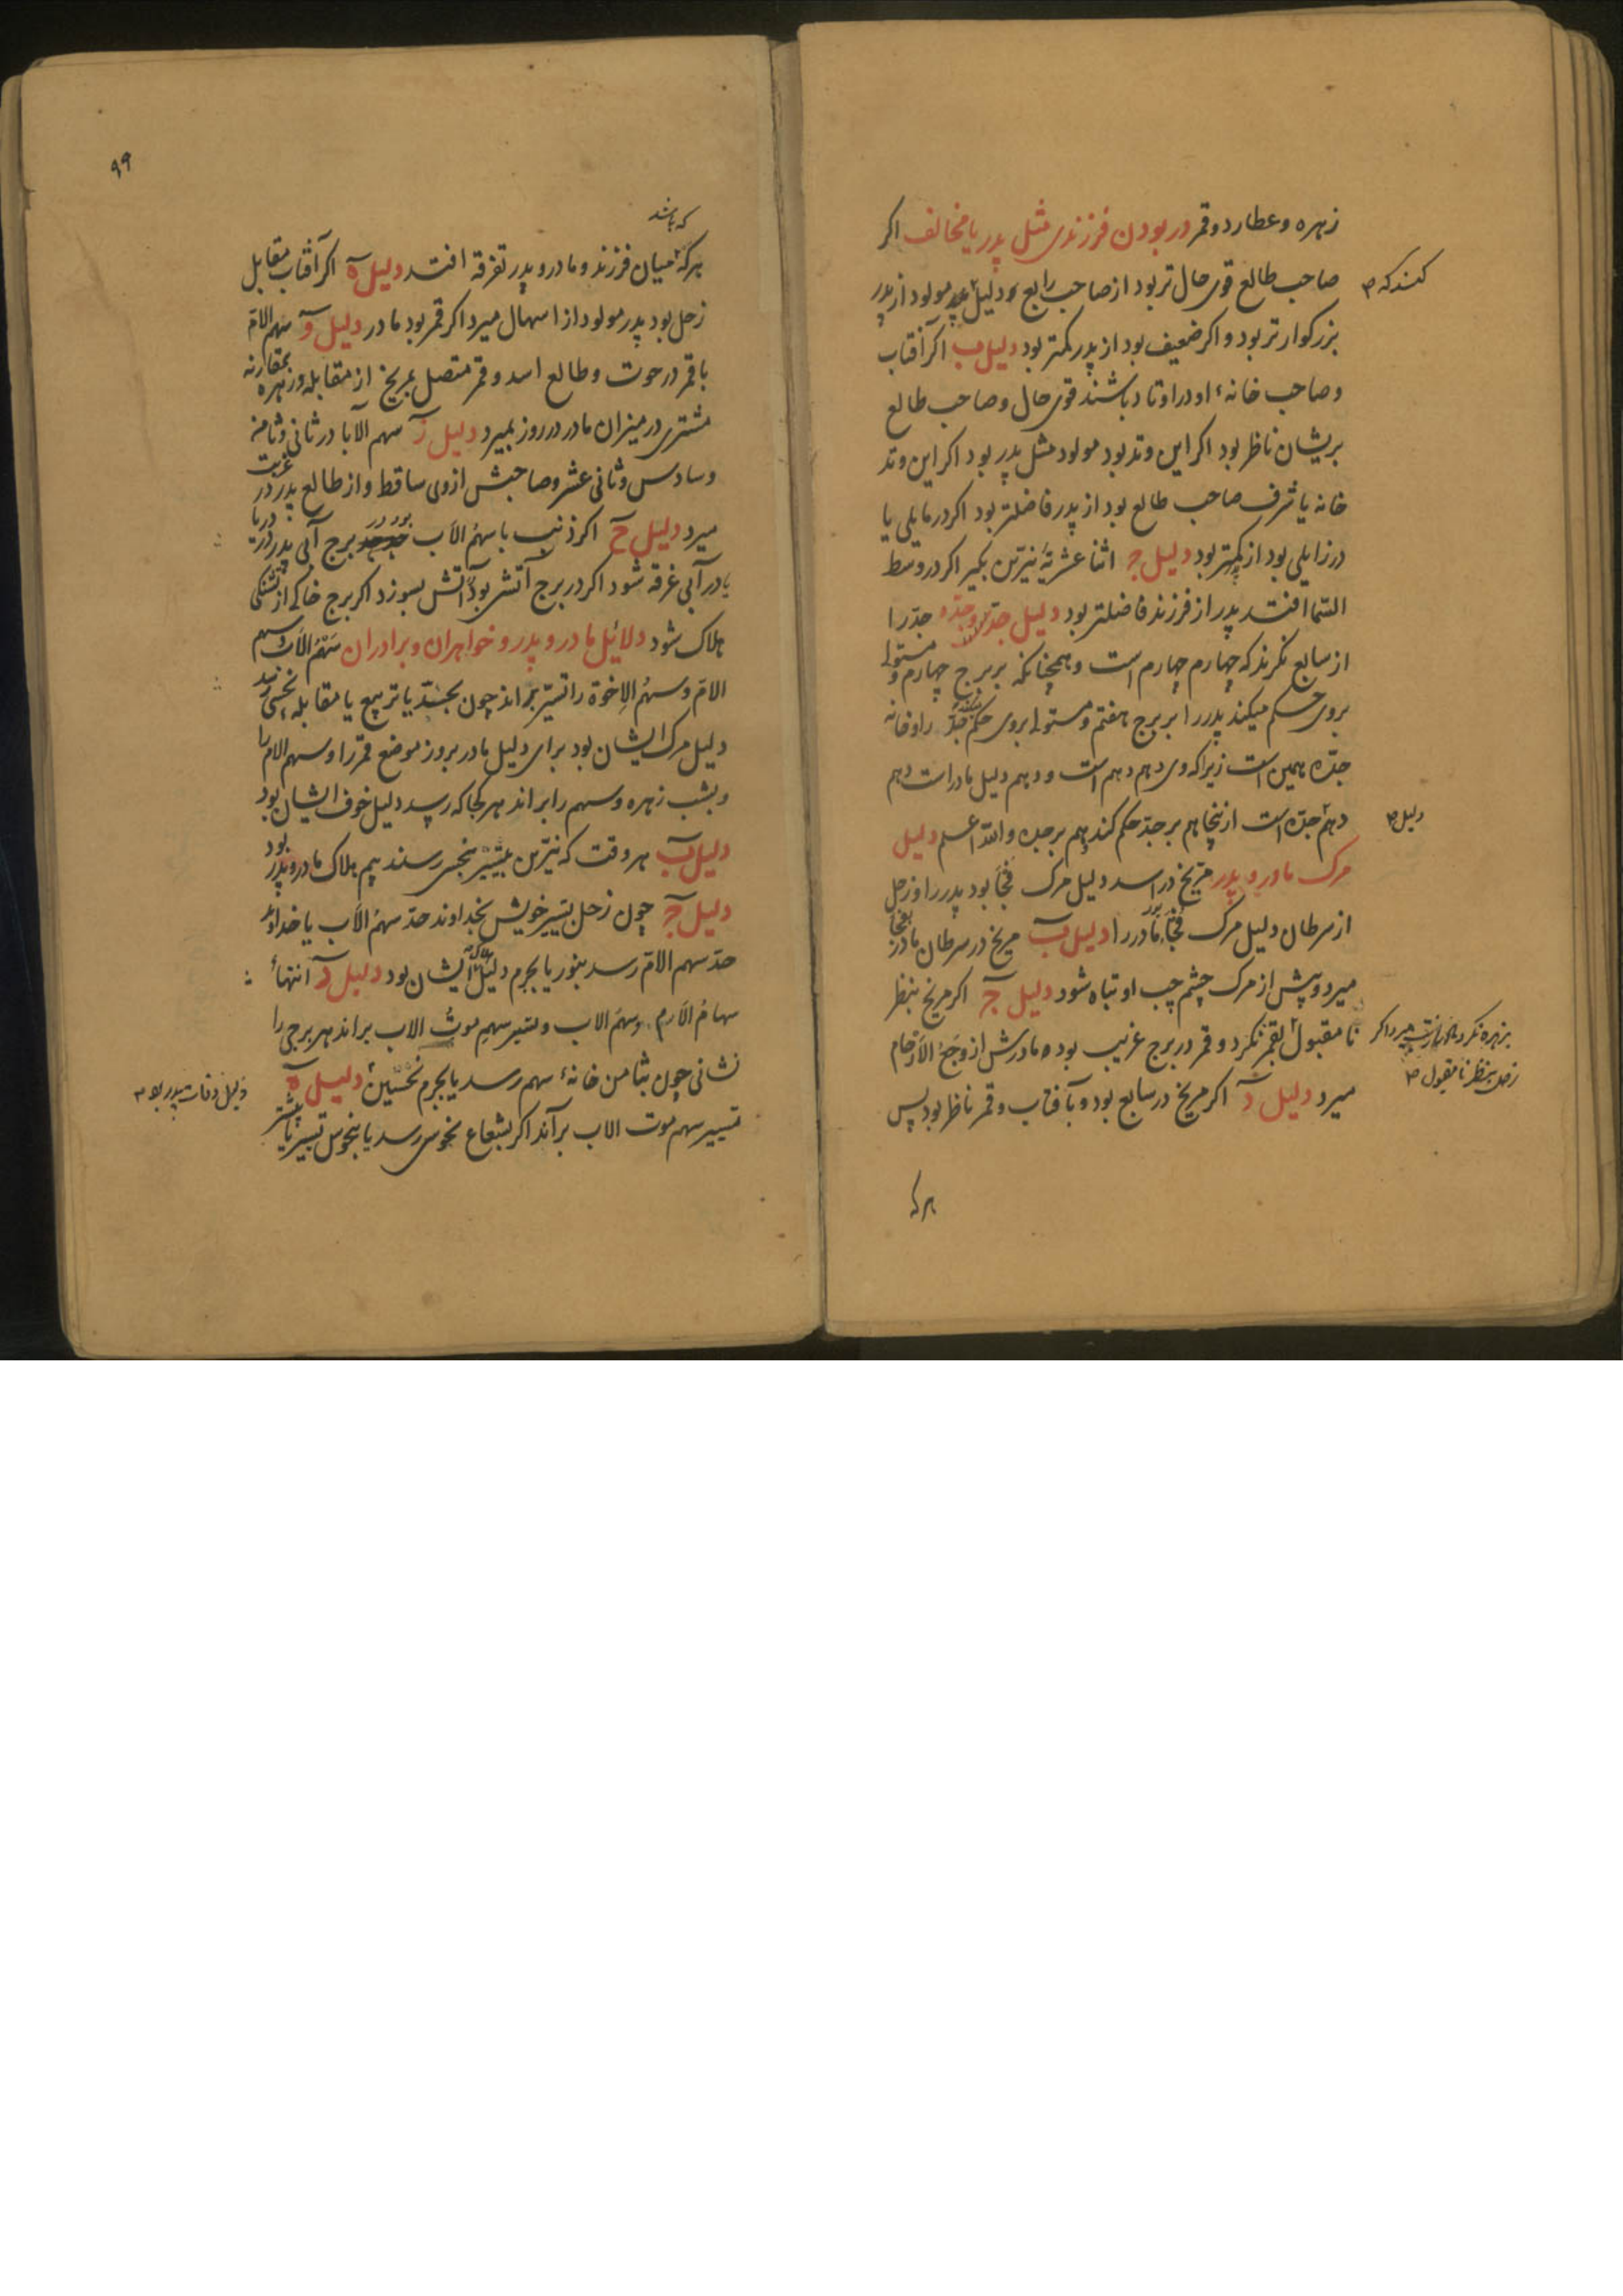 زهره و عطارد و قمر در بودن فرزندی مثل پدر یا مخالف اکر
صاحب طالع قوی حال تر بود از صاحب رابع دلیل مولود از پدر
کنند که
بزرکوارتر بود و اکر ضعیف بود از پدر کمتر بود دلیل ب اکر آفتاب
و صاحب خانهٔ او در اوتاد باشند قوی حال و صاحب طالع
بریشان ناظر بود اکر این وتد بود مولود مثل پدر بود اکر این وتد
خانه یا شرف صاحب طالع بود از پدر فاضلتر بود اکر در مایلی یا
در زایلی بود از پدر کمتر بود دلیل ج اثنا عشریهٔ نیرین بکیر اکر در وسط
السّما افتد پدر از فرزند فاضلتر بود دلیل جدّ و جدّه جدّ را
از سابع نکرند که چهارم چهارم است و همچنانکه بر برج چهارم و مستولی
بروی حکم میکند پدر را بر برج هفتم و مستولی بروی حکم کنند جدّ را و خانه
جدّه همین است زیرا که وی دهم دهم است و دهم دلیل مادر است دهم
دهم جدّه است ازینجا هم بر جدّ حکم کند هم بر جده والله اعلم دلیل
دلیل
مرک مادر و پدر مریخ در اسد دلیل مرک فجأ بود پدر را و زحل
از سرطان دلیل مرک فجأ بود مادر را دلیل ب مریخ در سرطان مادر بفجأ
میرد و پیش از مرک چشم چپ او تباه شود دلیل ج اکر مریخ بنظر
نا مقبول بقمر نکرد و قمر در برج غریب بود مادرش از وجع الارحام
بزهره نکرد میرد اکر
زحل بنظر نا مقبول
میرد دلیل د اکر مریخ در سابع بود و بآفتاب و قمر ناظر بود پس
هرکه
۹۹
که باشد
هرکه میان فرزند و مادر و پدر تفرقه افتد دلیل ه اکر آفتاب مقابل
زحل بود پدر مولود از اسهال میرد اکر قمر بود مادر دلیل و سهم الامّ
با قمر در حوت و طالع اسد و قمر متصل بمریخ از مقابله و زهره بمقارنه
مشتری در میزان مادر در روز بمیرد دلیل ز سهم الآبا در ثانی و ثامن
و سادس و ثانی عشر و صاحبش از وی ساقط و از طالع پدر در غربت
میرد دلیل ح اکر ذنب با سهم الاب بود در برج آبی پدر در دریا
یا در آبی غرقه شود اکر در برج آتشی بود بآتش بسوزد اکر برج خاکی از تشنکی
هلاک شود دلائل مادر و پدر و خواهران و برادران سهم الاب و سهم
الامّ و سهم الاخوة را تسییر براند چون بجسد یا تربیع یا مقابلهٔ نحسی رسد
دلیل مرک ایشان بود برای دلیل مادر بروز موضع قمر را و سهم الام را
و بشب زهره و سهم را براند هر کجا که رسد دلیل خوف ایشان بود
دلیل ب هر وقت که نیّرین بتسییر بنحس رسند بیم هلاک مادر و پدر بود
دلیل ج چون زحل بتسییر خویش بخداوند حدّ سهم الاب یا خداوند
حدّ سهم الامّ رسد بنور یا بجرم دلیل هلاک ایشان بود دلیل د انتهاء
سهام الارم و سهم الاب و بتسییر سهم موت الاب براند هر برجی را
نشانی چون بثامن خانهٔ سهم رسد یا بجرم نحسین دلیل ه
دلیل وفات پدر بود
تسییر سهم موت الاب برآند اکر بشعاع نحوس رسد یا بنحوس تسییر یا